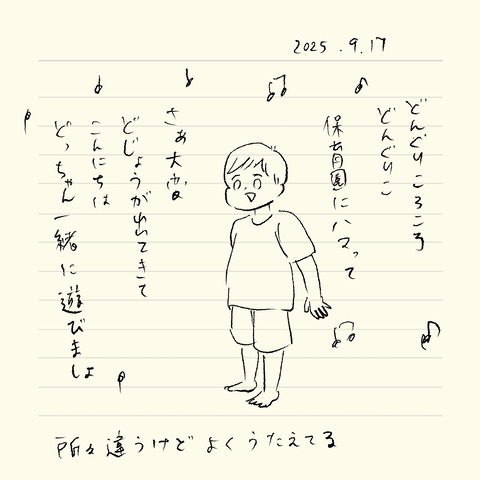 2025.9.17
どんぐりころころ
どんぐりこ
保育園にハマって
さあ大変
どじょうが出てきて
こんにちは
どっちゃん一緒に遊びましょ
所々違うけどよくうたえてる